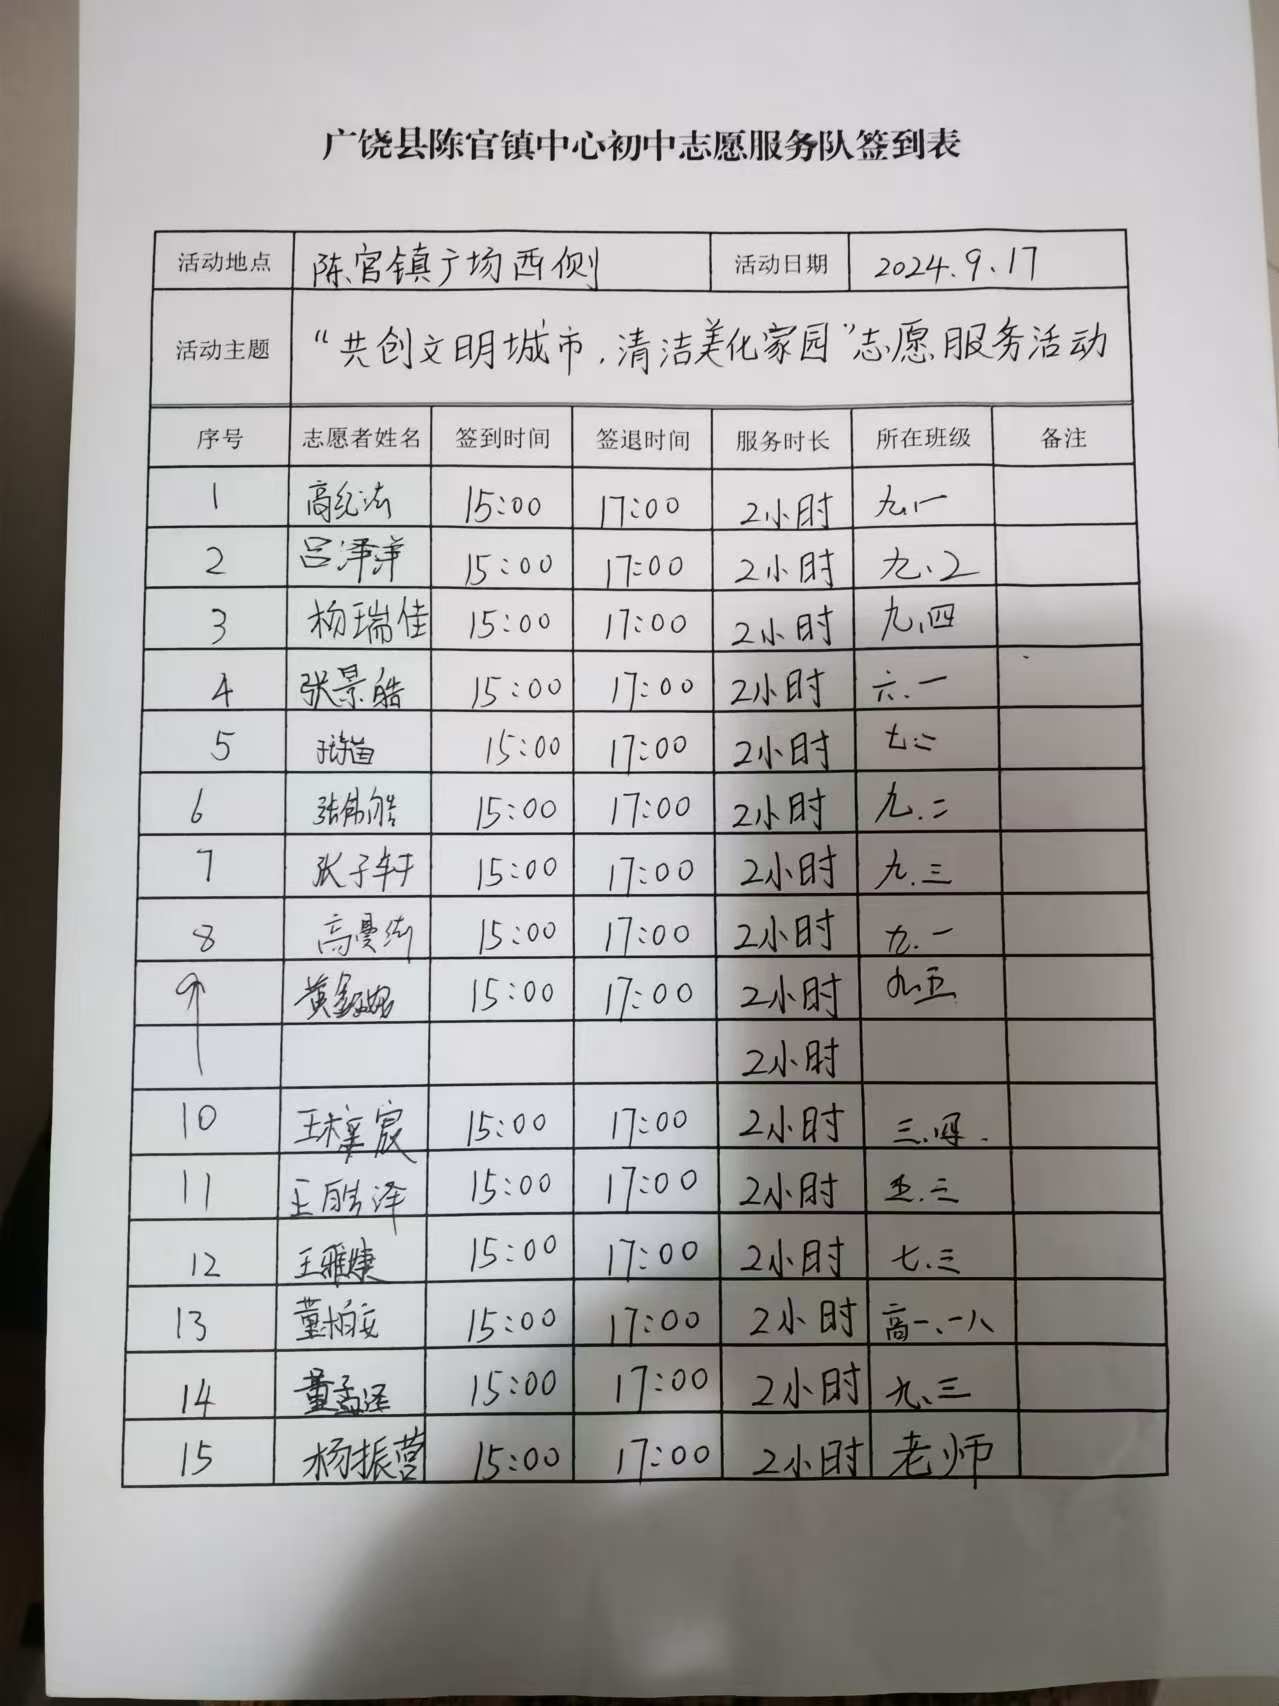 广饶县陈官镇中心初中志愿服务队签到表
活动地点 陈官镇广场西侧 活动日期 2024.9.17
活动主题 “共创文明城市，清洁美化家园”志愿服务活动
序号 志愿者姓名 签到时间 签退时间 服务时长 所在班级 备注
1 高纪法 15:00 17:00 2小时 九、一
2 吕泽洋 15:00 17:00 2小时 九、2
3 杨瑞佳 15:00 17:00 2小时 九、四
4 张景皓 15:00 17:00 2小时 六、一
5 15:00 17:00 2小时 七二
6 张皓 15:00 17:00 2小时 九、二
7 张子轩 15:00 17:00 2小时 九、三
8 高 15:00 17:00 2小时 九、一
9 黄 15:00 17:00 2小时 九五
2小时
10 王宸 15:00 17:00 2小时 三、四
11 王皓泽 15:00 17:00 2小时 五、三
12 王雅婕 15:00 17:00 2小时 七、三
13 董柏安 15:00 17:00 2小时 高一、一八
14 董孟泽 15:00 17:00 2小时 九、三
15 杨振营 15:00 17:00 2小时 老师